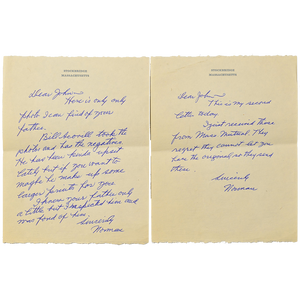 STOCKBRIDGE
MASSACHUSETTS
Dear John—
Here is only only
photo I can find of your
father.
Bill Scovill took the
photos and has the negatives
He has been kinda upset
lately but if you want to
maybe he make up some
larger prints for you
I knew your father only
a little but I respected him and
was fond of him.
Sincerely
Norman
STOCKBRIDGE
MASSACHUSETTS
Dear John—
This is my second
letter today.
I just received these
from Mass Mutual. They
regret they cannot let you
have the originals so they send
these.
Sincerely
Norman